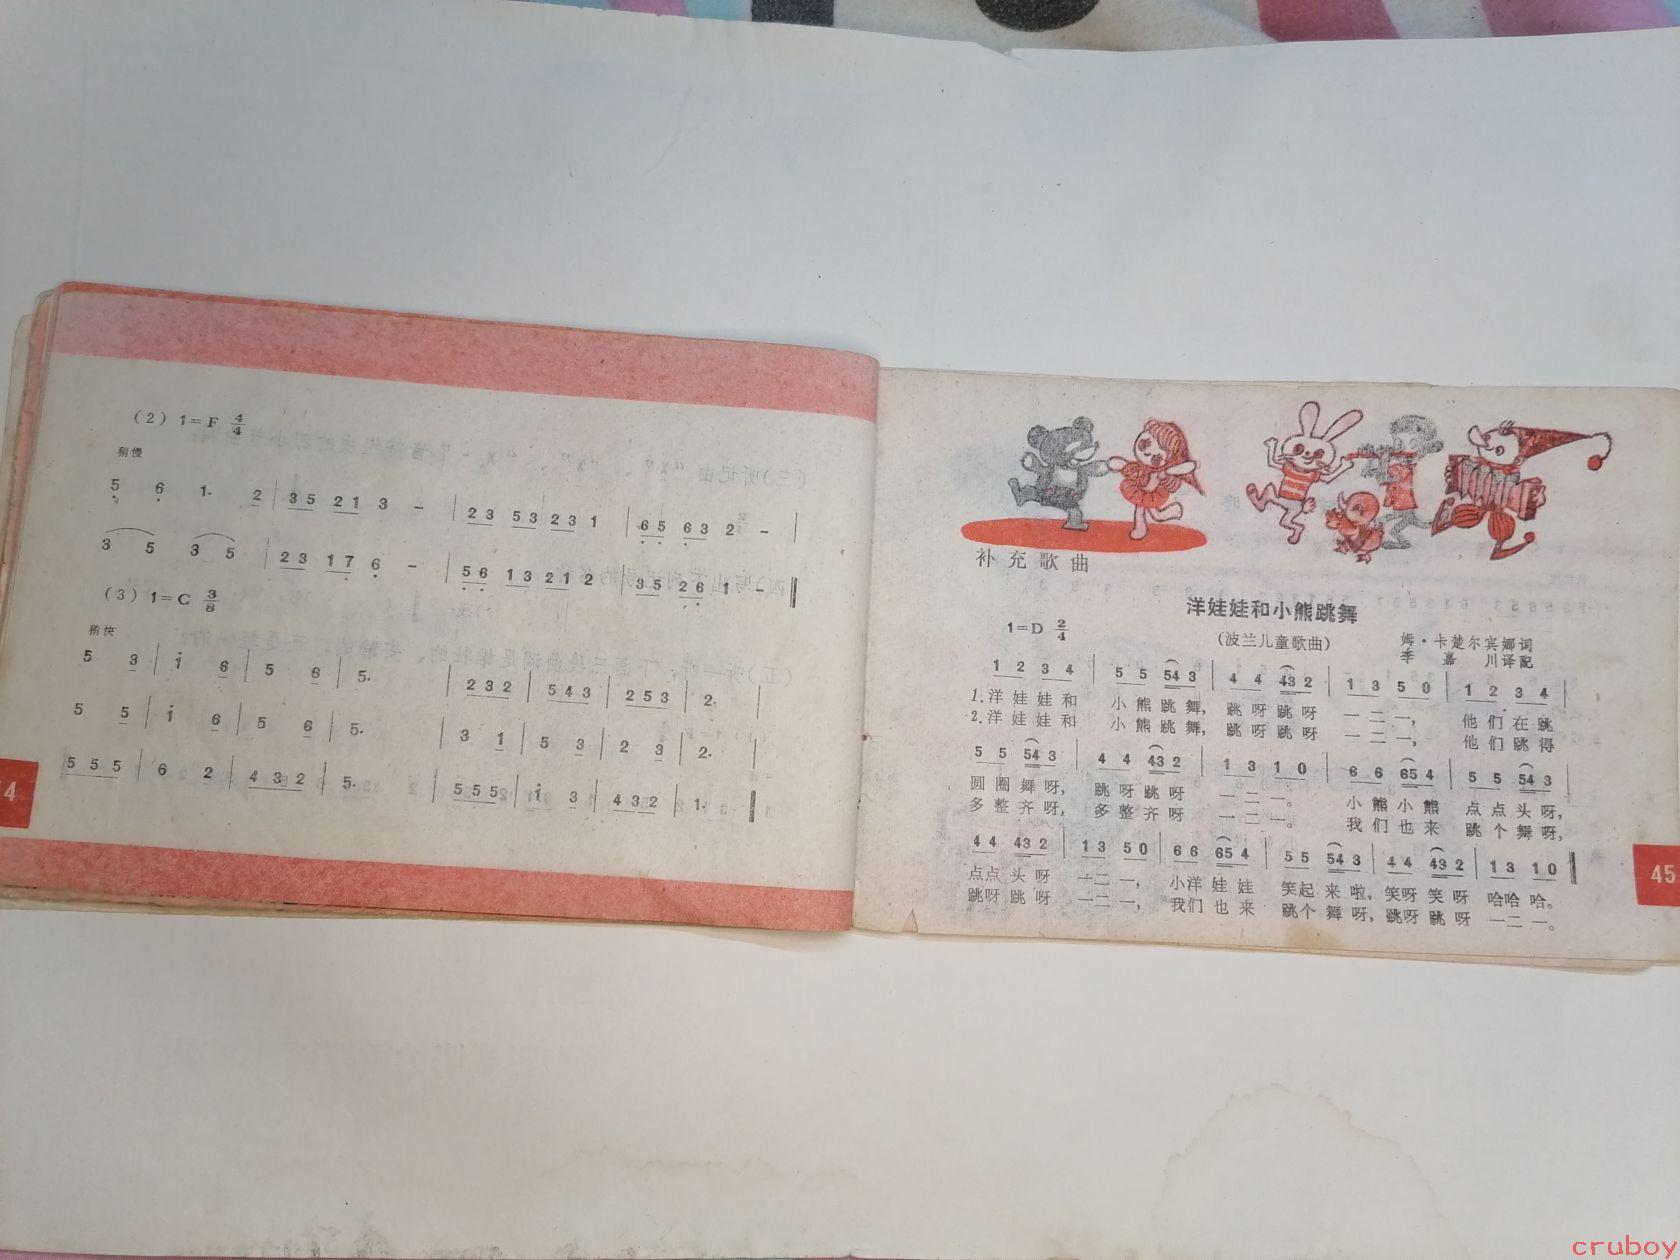 (2) 1=F 4/4
稍慢
5 6 1. 2 | 3 5 2 1 3 - | 2 3 5 3 2 3 1 | 6 5 6 3 2 - |
3 5 3 5 | 2 3 1 7 6 - | 5 6 1 3 2 1 2 | 3 5 2 6 1 - ‖
(3) 1=C 3/8
稍快
5 3 | i 6 | 5 6 | 5. | 2 3 2 | 5 4 3 | 2 5 3 | 2. |
5 5 | i 6 | 5 6 | 5. | 3 1 | 5 3 | 2 3 | 2. |
5 5 5 | 6 2 | 4 3 2 | 5. | 5 5 5 | i 3 | 4 3 2 | 1. ‖
4
补充歌曲
洋娃娃和小熊跳舞
1=D 2/4
(波兰儿童歌曲)
姆·卡楚尔宾娜词
李嘉川译配
1 2 3 4 | 5 5 54 3 | 4 4 43 2 | 1 3 5 0 | 1 2 3 4 |
1.洋娃娃和 小熊跳舞, 跳呀跳呀 一二一, 他们在跳
2.洋娃娃和 小熊跳舞, 跳呀跳呀 一二一, 他们跳得
5 5 54 3 | 4 4 43 2 | 1 3 1 0 | 6 6 65 4 | 5 5 54 3 |
圆圈舞呀, 跳呀跳呀 一二一。 小熊小熊 点点头呀,
多整齐呀, 多整齐呀 一二一。 我们也来 跳个舞呀,
4 4 43 2 | 1 3 5 0 | 6 6 65 4 | 5 5 54 3 | 4 4 43 2 | 1 3 1 0 ‖
点点头呀 一二一, 小洋娃娃 笑起来啦, 笑呀笑呀 哈哈哈。
跳呀跳呀 一二一, 我们也来 跳个舞呀, 跳呀跳呀 一二一。
45
cruboy